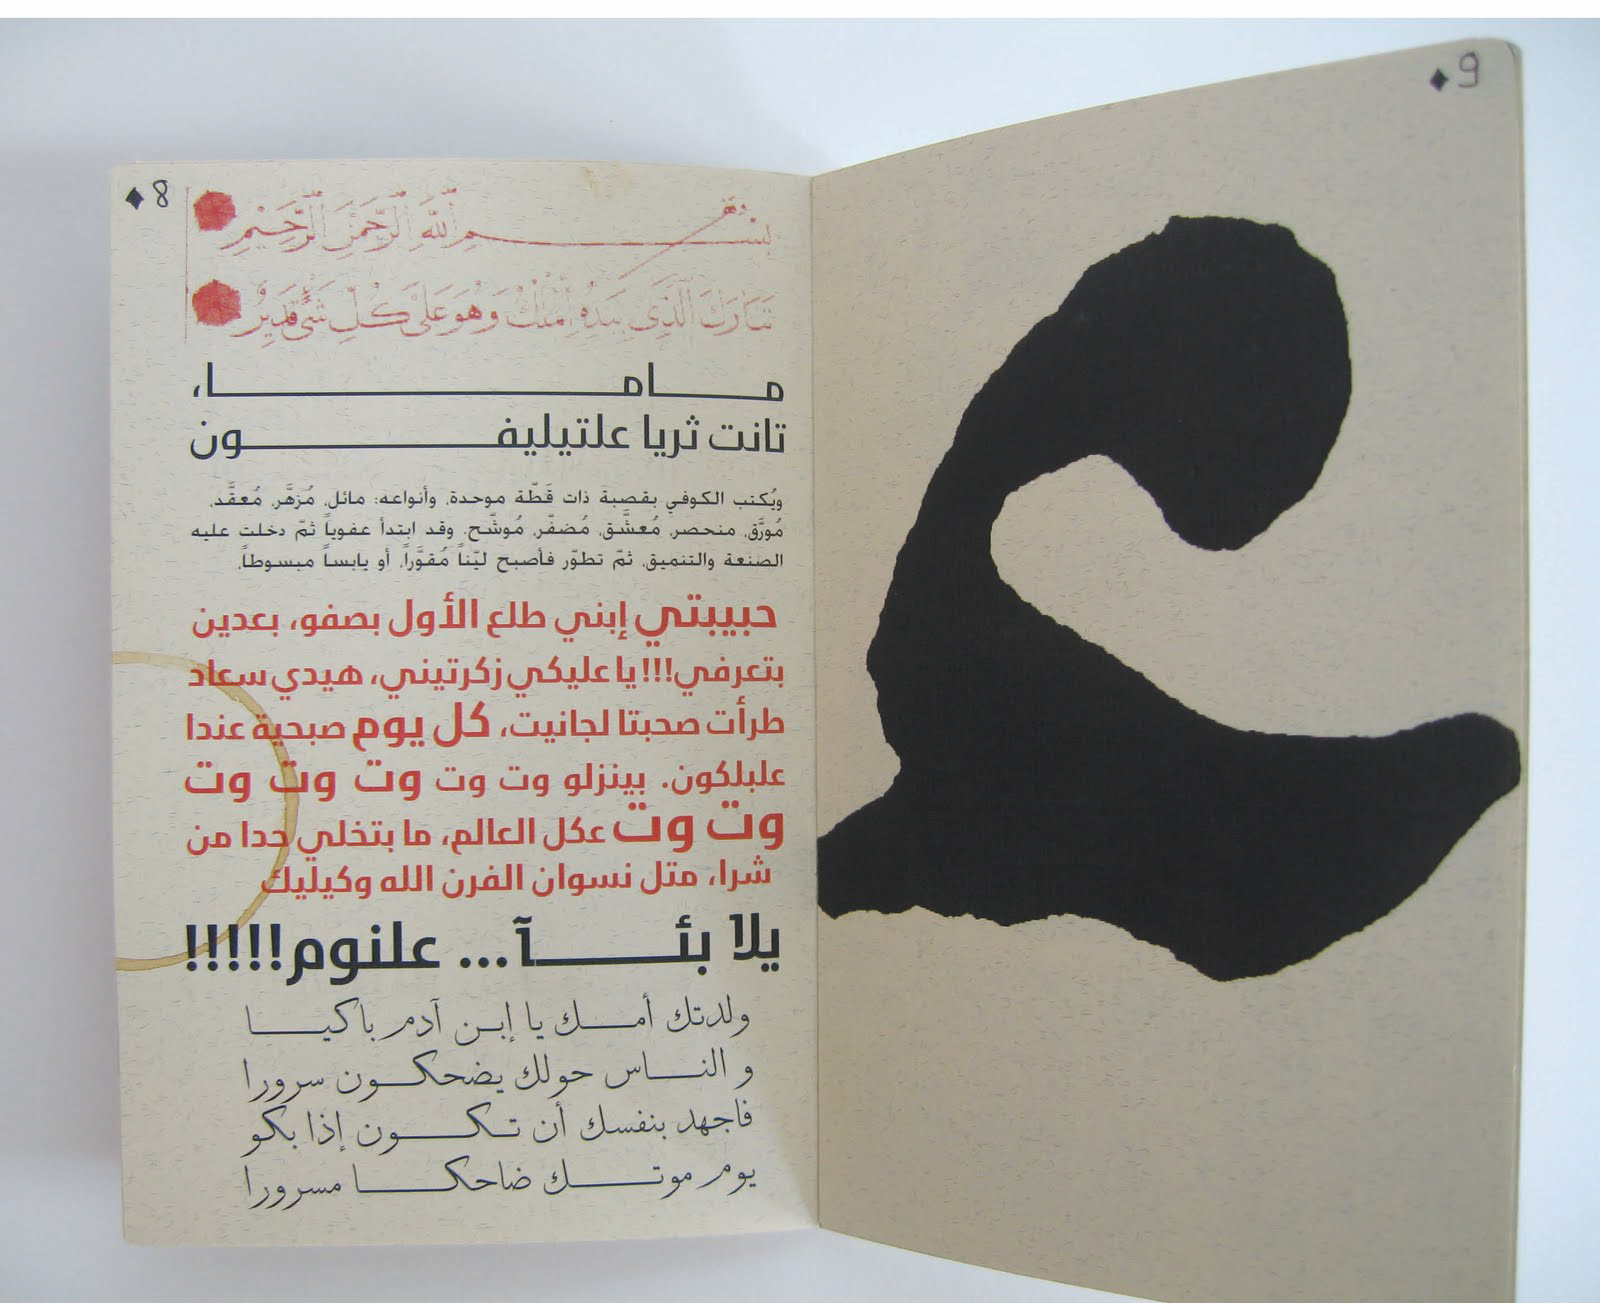 8
بسم الله الرحمن الرحيم
تبارك الذي بيده الملك وهو على كل شئ قدير
مــاما،
تانت ثريا علتيليفــون
ويُكتب الكوفي بقصبة ذات قَطّة موحدة، وأنواعه: مائل، مُزهَّر، مُعقَّد،
مُورَّق، منحصر، مُعشَّق، مُضفّر، مُوشّح. وقد ابتدأ عفوياً ثمّ دخلت عليه
الصنعة والتنميق، ثمّ تطوّر فأصبح ليّناً مُقوَّراً، أو يابساً مبسوطاً.
حبيبتي إبني طلع الأول بصفو، بعدين
بتعرفي!!! يا عليكي زكرتيني، هيدي سعاد
طرأت صحبتا لجانيت، كل يوم صبحية عندا
علبلكون. بينزلو وت وت وت وت وت
وت وت عكل العالم، ما بتخلي حدا من
شرا، متل نسوان الفرن الله وكيليك
يلا بئــآ... علنوم!!!!!
ولدتك أمــك يا إبــن آدم باكيــا
و النــاس حولك يضحكــون سرورا
فاجهد بنفسك أن تكــون إذا بكو
يوم موتــك ضاحكــا مسرورا
9